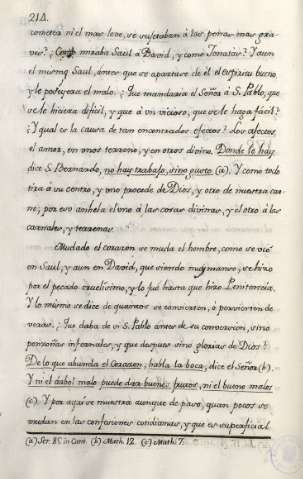 214.
cometia ni el mas leve, se sujetaban á las penas mas gra-
ves? ¿Como miraba Saúl á David, y como Jonatás? Y aun
el mismo Saúl, antes que se apartase de él el espíritu bueno,
y le poseyera el malo? ¿Que mandaria el Señor á S. Pablo, que
se le hiciera dificil, y que á un vicioso, que se le haga fácil?
¿Y qual es la causa de tan encontrados efectos? Los afectos
el amor, en unos terreno, y en otros divino. Donde le hay
dice S. Bernardo, no hay trabajo, sino gusto (a). Y como todo
tira á su centro, y uno procede de Dios, y otro de nuestra car-
ne; por eso anhela el uno á las cosas divinas, y el otro á las
carnales, y terrenas.
Mudado el corazon se muda el hombre, como se vió
en Saul, y aun en David, que siendo muy manso, se hizo
por el pecado cruelisimo, y lo fué hasta que hizo Penitencia.
Y lo mismo se dice de quantos se convierten, ó pervierten de
veras. ¿Que daba de sí S. Pablo antes de su conversion, sino
ponzoñas infernales, y que despues sino glorias de Dios?
De lo que abunda el Corazon, habla la boca, dice el Señor (b).
Y ni el árbol malo puede dar buenos frutos, ni el bueno malos
(c). Y por aquí se muestra aunque de paso, quan pocos se
mudan en las confesiones cotidianas, y que es superficial
(a) Ser. 85 in Cant. (b) Math. 12. (c) Math. 7.